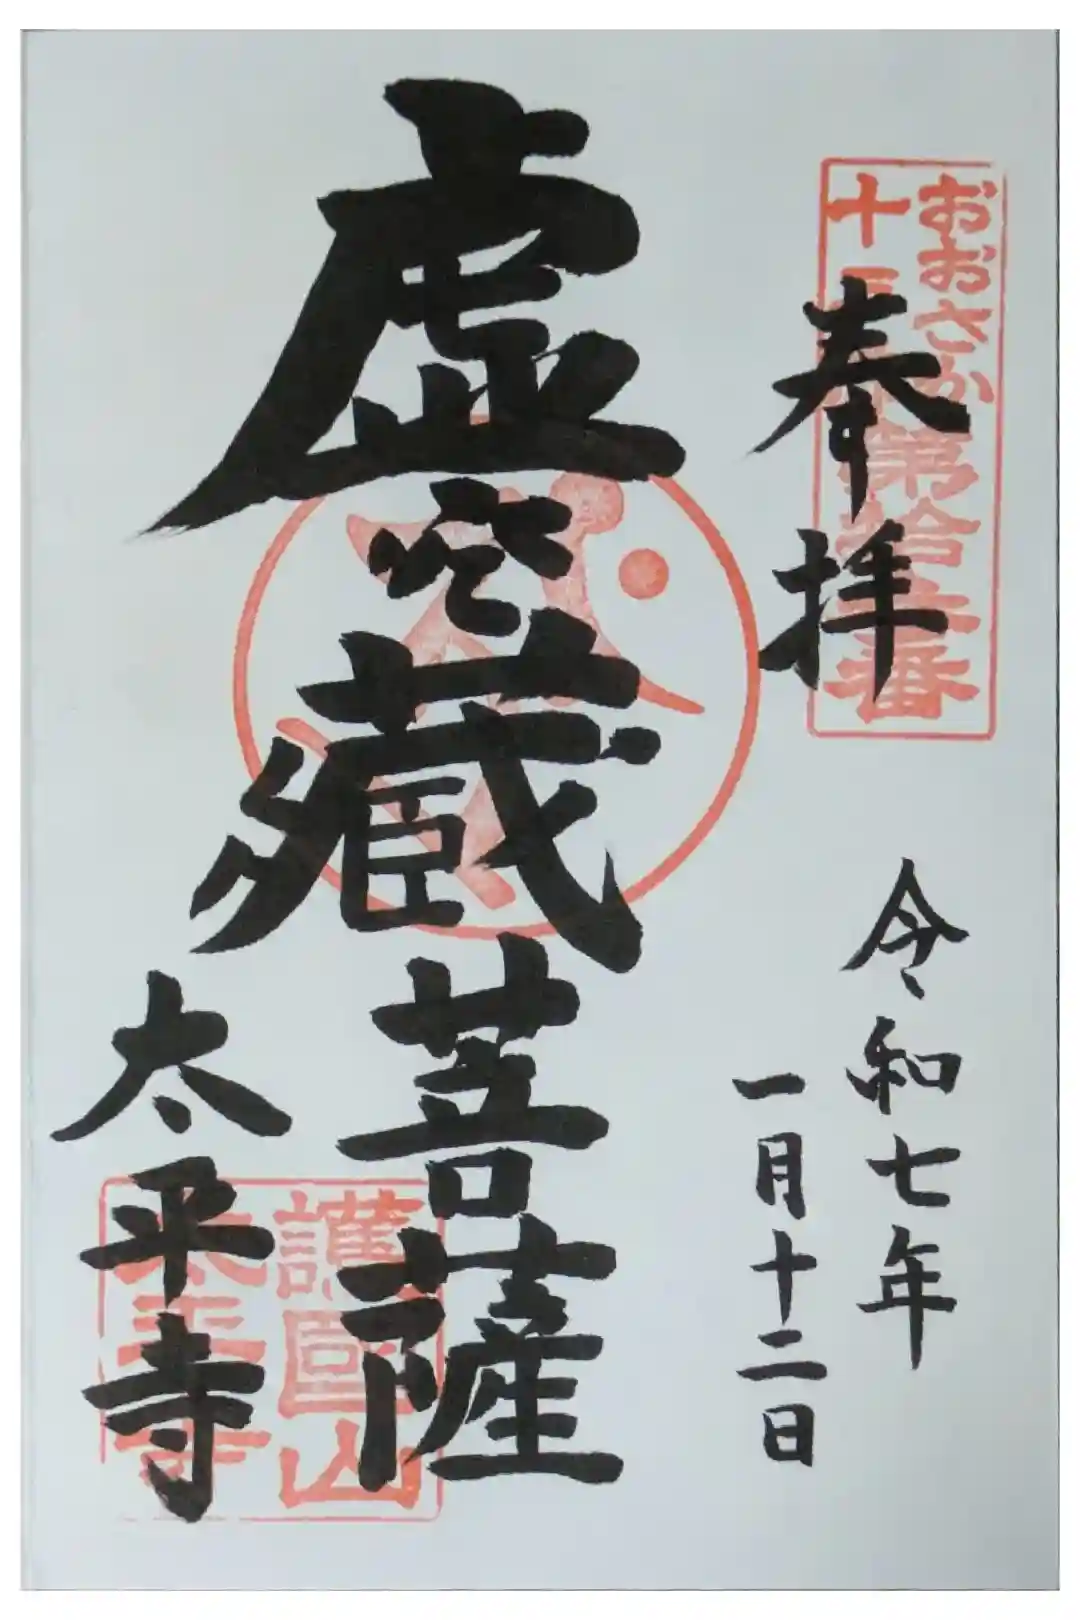 おおさか
十三佛
第拾三番
奉拝
令和七年
一月十二日
虚空藏菩薩
護國山
太平寺
太平寺